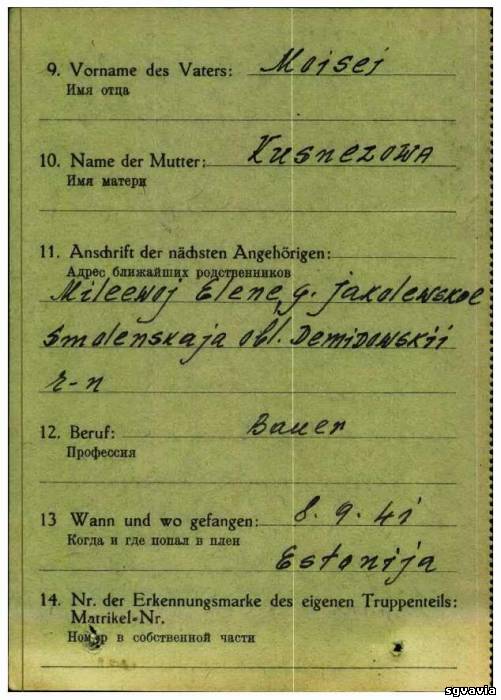 9. Vorname des Vaters: Moisej
Имя отца
10. Name der Mutter: Kusnezowa
Имя матери
11. Anschrift der nächsten Angehörigen:
Адрес ближайших родственников
Mileewoj Elene, g. Jakolewskoe
Smolenskaja obl. Demidowskii
r-n
12. Beruf: Bauer
Профессия
13 Wann und wo gefangen: 8. 9. 41
Когда и где попал в плен
Estonija
14. Nr. der Erkennungsmarke des eigenen Truppenteils:
Matrikel-Nr.
Номер в собственной части
sgvavia